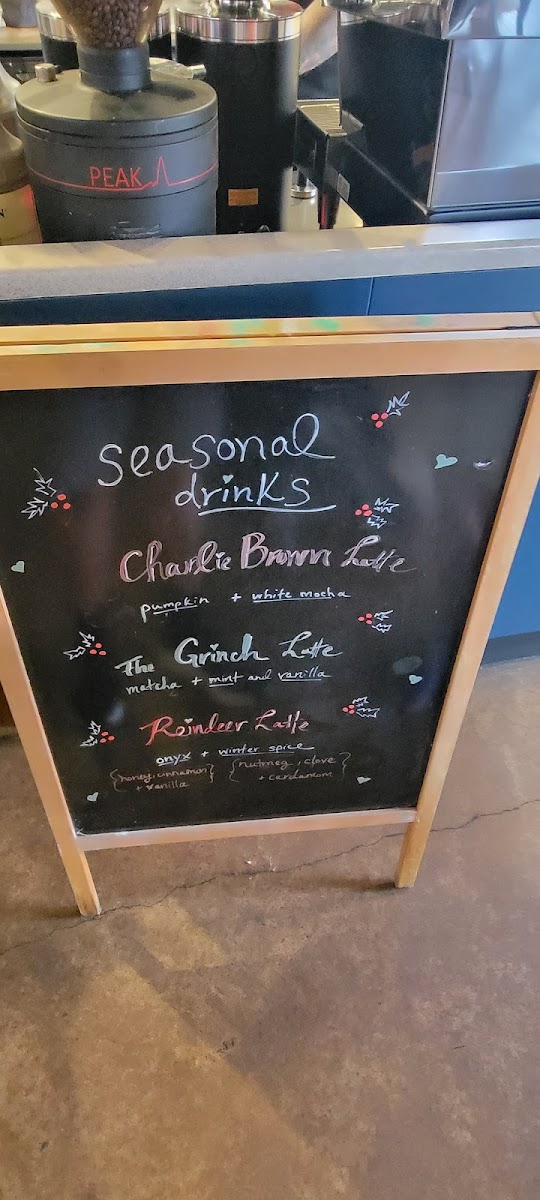 PEAK
seasonal
drinks
Charlie Brown Latte
pumpkin + white mocha
The Grinch Latte
matcha + mint and vanilla
Reindeer Latte
onyx + winter spice
{honey, cinnamon + vanilla}
{nutmeg, clove + cardamom}